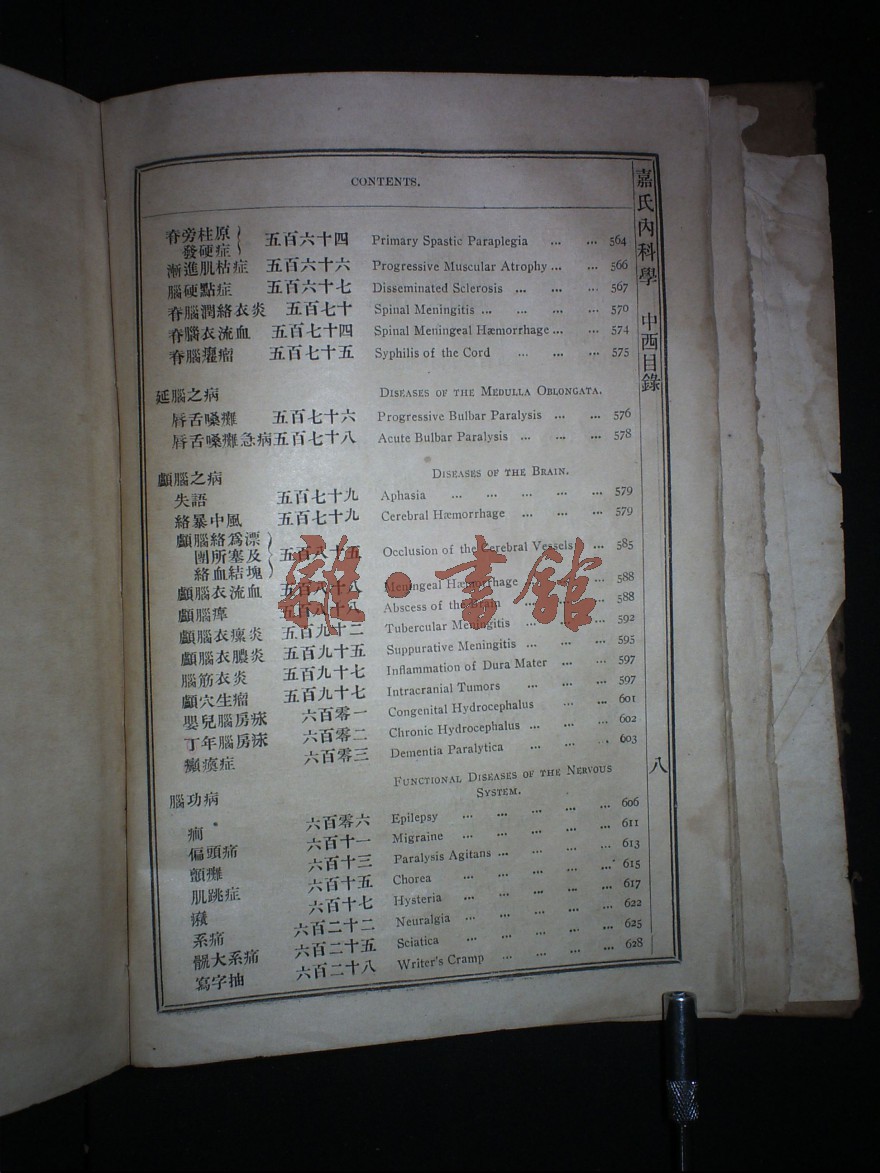 CONTENTS.
嘉氏內科學 中西目錄
八
脊旁柱原發硬症 五百六十四 Primary Spastic Paraplegia ... ... 564
漸進肌枯症 五百六十六 Progressive Muscular Atrophy ... ... 566
腦硬點症 五百六十七 Disseminated Sclerosis ... ... ... 567
脊腦潤絡衣炎 五百七十 Spinal Meningitis ... ... ... ... 570
脊腦衣流血 五百七十四 Spinal Meningeal Hæmorrhage ... ... 574
脊腦癰瘤 五百七十五 Syphilis of the Cord ... ... ... 575
延腦之病 DISEASES OF THE MEDULLA OBLONGATA.
唇舌嗓癱 五百七十六 Progressive Bulbar Paralysis ... ... 576
唇舌嗓癱急病 五百七十八 Acute Bulbar Paralysis ... ... ... 578
顱腦之病 DISEASES OF THE BRAIN.
失語 五百七十九 Aphasia ... ... ... ... ... 579
絡暴中風 五百七十九 Cerebral Hæmorrhage ... ... ... 579
顱腦絡為漂團所塞及絡血結塊 五百八十五 Occlusion of the Cerebral Vessels ... 585
顱腦衣流血 五百八十八 Meningeal Hæmorrhage ... ... ... 588
顱腦瘴 五百八十八 Abscess of the Brain ... ... ... 588
顱腦衣瘰炎 五百九十二 Tubercular Meningitis ... ... ... 592
顱腦衣膿炎 五百九十五 Suppurative Meningitis ... ... ... 595
腦筋衣炎 五百九十七 Inflammation of Dura Mater ... ... 597
顱穴生瘤 五百九十七 Intracranial Tumors ... ... ... 597
嬰兒腦房 六百零一 Congenital Hydrocephalus ... ... 601
丁年腦房 六百零二 Chronic Hydrocephalus ... ... ... 602
癲瘓症 六百零三 Dementia Paralytica ... ... ... 603
腦功病 FUNCTIONAL DISEASES OF THE NERVOUS
SYSTEM.
癇 六百零六 Epilepsy ... ... ... ... ... 606
偏頭痛 六百十一 Migraine ... ... ... ... ... 611
顫癱 六百十三 Paralysis Agitans ... ... ... ... 613
肌跳症 六百十五 Chorea ... ... ... ... ... 615
六百十七 Hysteria ... ... ... ... ... 617
系痛 六百二十二 Neuralgia ... ... ... ... ... 622
髖大系痛 六百二十五 Sciatica ... ... ... ... ... 625
寫字抽 六百二十八 Writer's Cramp ... ... ... ... 628
雜·書館